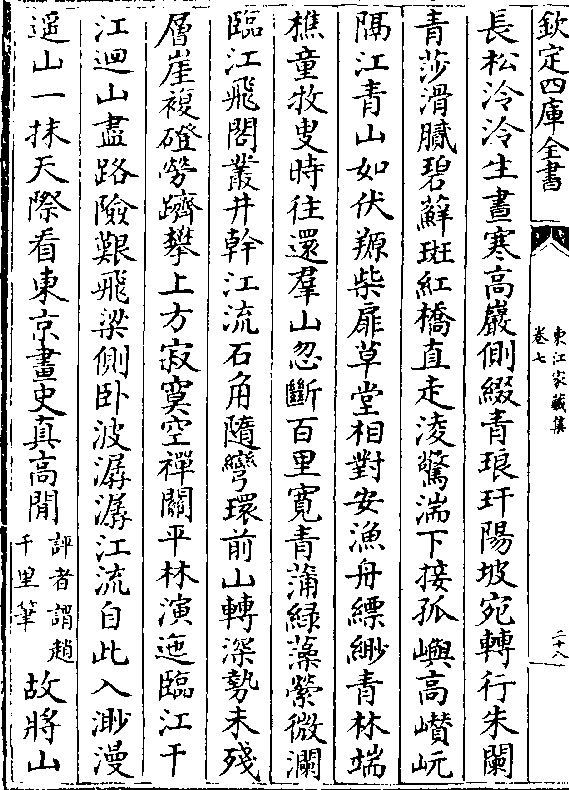 欽定四庫全書
東江家藏集
卷七
二十八
長松泠泠生晝寒高巖側綴青琅玕陽坡宛轉行朱闌
青莎滑膩碧蘚斑紅橋直走淩驚湍下接孤嶼高巑岏
隔江青山如伏羱柴扉草堂相對安漁舟縹緲青林端
樵童牧叟時往還羣山忽斷百里寛青蒲緑藻縈微瀾
臨江飛閣叢井幹江流石角隨彎環前山轉深勢未殘
層崖複磴勞躋攀上方寂寞空禪關平林演迤臨江干
江迴山盡路險艱飛梁側卧波潺潺江流自此入渺漫
遥山一抹天際看東京畫史真高閒評者謂趙千里筆故將山